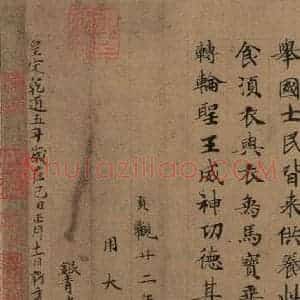 舉國士民皆來供養
食須衣與衣象馬寶
轉輪聖王成神功德其
貞觀廿二年
用大
銀青
皇宋乾道五年歲在己丑正月十一日
hufaziliao.com